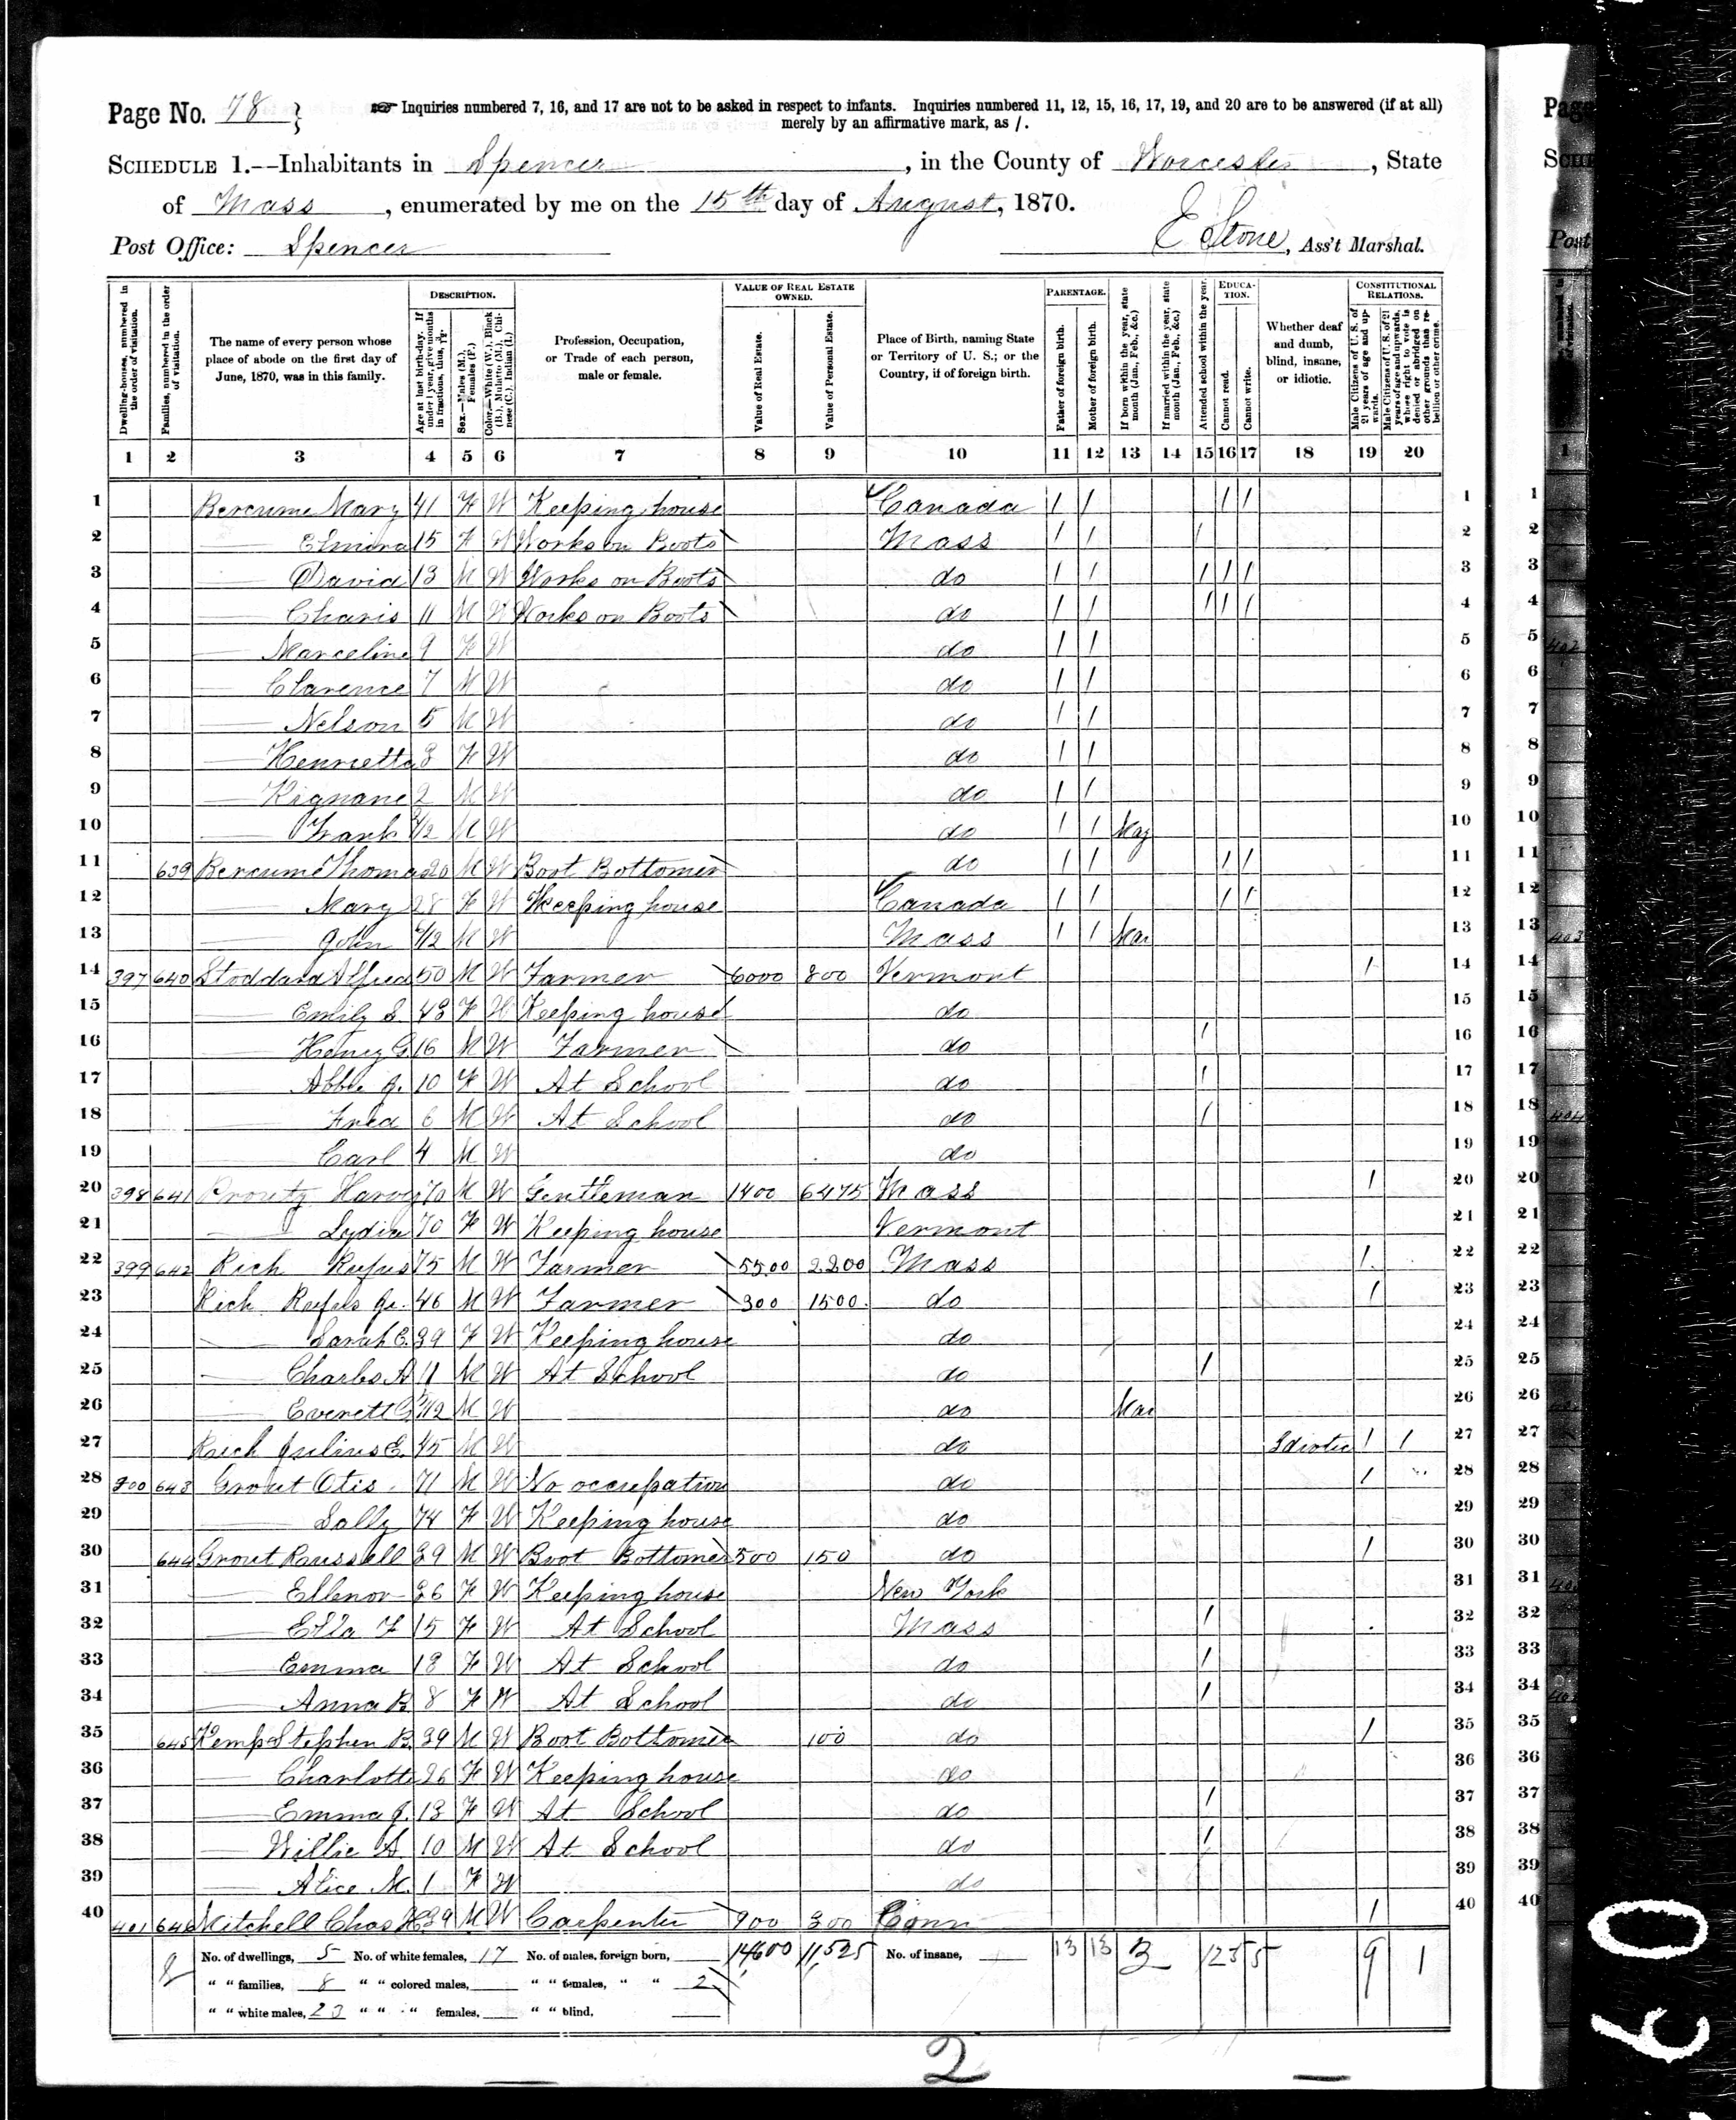 Page No. 78 } Inquiries numbered 7, 16, and 17 are not to be asked in respect to infants. Inquiries numbered 11, 12, 15, 16, 17, 19, and 20 are to be answered (if at all)
merely by an affirmative mark, as /.
SCHEDULE 1.--Inhabitants in Spencer, in the County of Worcester, State
of Mass, enumerated by me on the 15th day of August, 1870.
Post Office: Spencer E Stone, Ass't Marshal.
Dwelling-houses, numbered in the order of visitation.
Families, numbered in the order of visitation.
The name of every person whose place of abode on the first day of June, 1870, was in this family.
DESCRIPTION.
Age at last birth-day. If under 1 year, give months in fractions, thus, 3/12
Sex.—Males (M.), Females (F.)
Color.—White (W.), Black (B.), Mulatto (M.), Chinese (C.), Indian (I.)
Profession, Occupation, or Trade of each person, male or female.
VALUE OF REAL ESTATE OWNED.
Value of Real Estate.
Value of Personal Estate.
Place of Birth, naming State or Territory of U. S.; or the Country, if of foreign birth.
PARENTAGE.
Father of foreign birth.
Mother of foreign birth.
If born within the year, state month (Jan., Feb., &c.)
If married within the year, state month (Jan., Feb., &c.)
Attended school within the year.
EDUCATION.
Cannot read.
Cannot write.
Whether deaf and dumb, blind, insane, or idiotic.
CONSTITUTIONAL RELATIONS.
Male Citizens of U. S. of 21 years of age and upwards.
Male Citizens of U. S. of 21 years of age and upwards, whose right to vote is denied or abridged on other grounds than rebellion or other crime.
1 2 3 4 5 6 7 8 9 10 11 12 13 14 15 16 17 18 19 20
1 Bercume Mary 41 F W Keeping house Canada / / / / 1
2 —— Elmira 15 F W Works on Boots Mass / / / 2
3 —— David 13 M W Works on Boots do / / / / / 3
4 —— Charis 11 M W Works on Boots do / / / / / 4
5 —— Marceline 9 F W do / / 5
6 —— Clarence 7 M W do / / 6
7 —— Nelson 5 M W do / / 7
8 —— Henrietta 3 F W do / / 8
9 —— 2 M W do / / 9
10 —— Frank /12 M W do / / May 10
11 639 Bercume Thomas 20 M W Boot Bottomer do / / / / 11
12 —— Mary 28 F W Keeping house Canada / / / / 12
13 —— John /12 M W Mass / / Mar 13
14 397 640 Stoddard Alfred 50 M W Farmer 6000 300 Vermont / 14
15 —— Emily S. 43 F W Keeping house do 15
16 —— Henry G. 16 M W Farmer do / 16
17 —— Abbie J. 10 F W At School do / 17
18 Fred 6 M W At School do / 18
19 —— Carl 4 M W do 19
20 398 641 Prouty Harvey 70 M W Gentleman 1400 6475 Mass / 20
21 —— Lydia 70 F W Keeping house Vermont 21
22 399 642 Rich Rufus 75 M W Farmer 5500 2200 Mass / 22
23 Rich Rufus Jr. 46 M W Farmer 300 1500 do / 23
24 —— Sarah E. 39 F W Keeping house do 24
25 —— Charles A 11 M W At School do / 25
26 —— Everett G /12 M W do Mar 26
27 Rich Julius E. 45 M W do Idiotic / / 27
28 400 643 Grout Otis 71 M W No occupation do / 28
29 —— Sally 74 F W Keeping house do 29
30 644 Grout Russell 39 M W Boot Bottomer 500 150 do / 30
31 —— Ellenor 36 F W Keeping house New York 31
32 —— Ella F 15 F W At School Mass / 32
33 —— Emma 13 F W At School do / 33
34 —— Anna B 8 F W At School do / 34
35 645 Kemp Stephen B. 39 M W Boot Bottomer 100 do / 35
36 —— Charlotte 36 F W Keeping house do 36
37 —— Emma J. 13 F W At School do / 37
38 —— Willie A 10 M W At School do / 38
39 —— Alice M. 1 F W do 39
40 401 646 Mitchell Chas H 39 M W Carpenter 900 300 Conn / 40
No. of dwellings, 5 No. of white females, 17 No. of males, foreign born, 14600 11,525 No. of insane, 13 13 3 12 5 5 9 1
" " families, 8 " " colored males, " " females, " " 2
" " white males, 23 " " " females, " " blind,
2
60